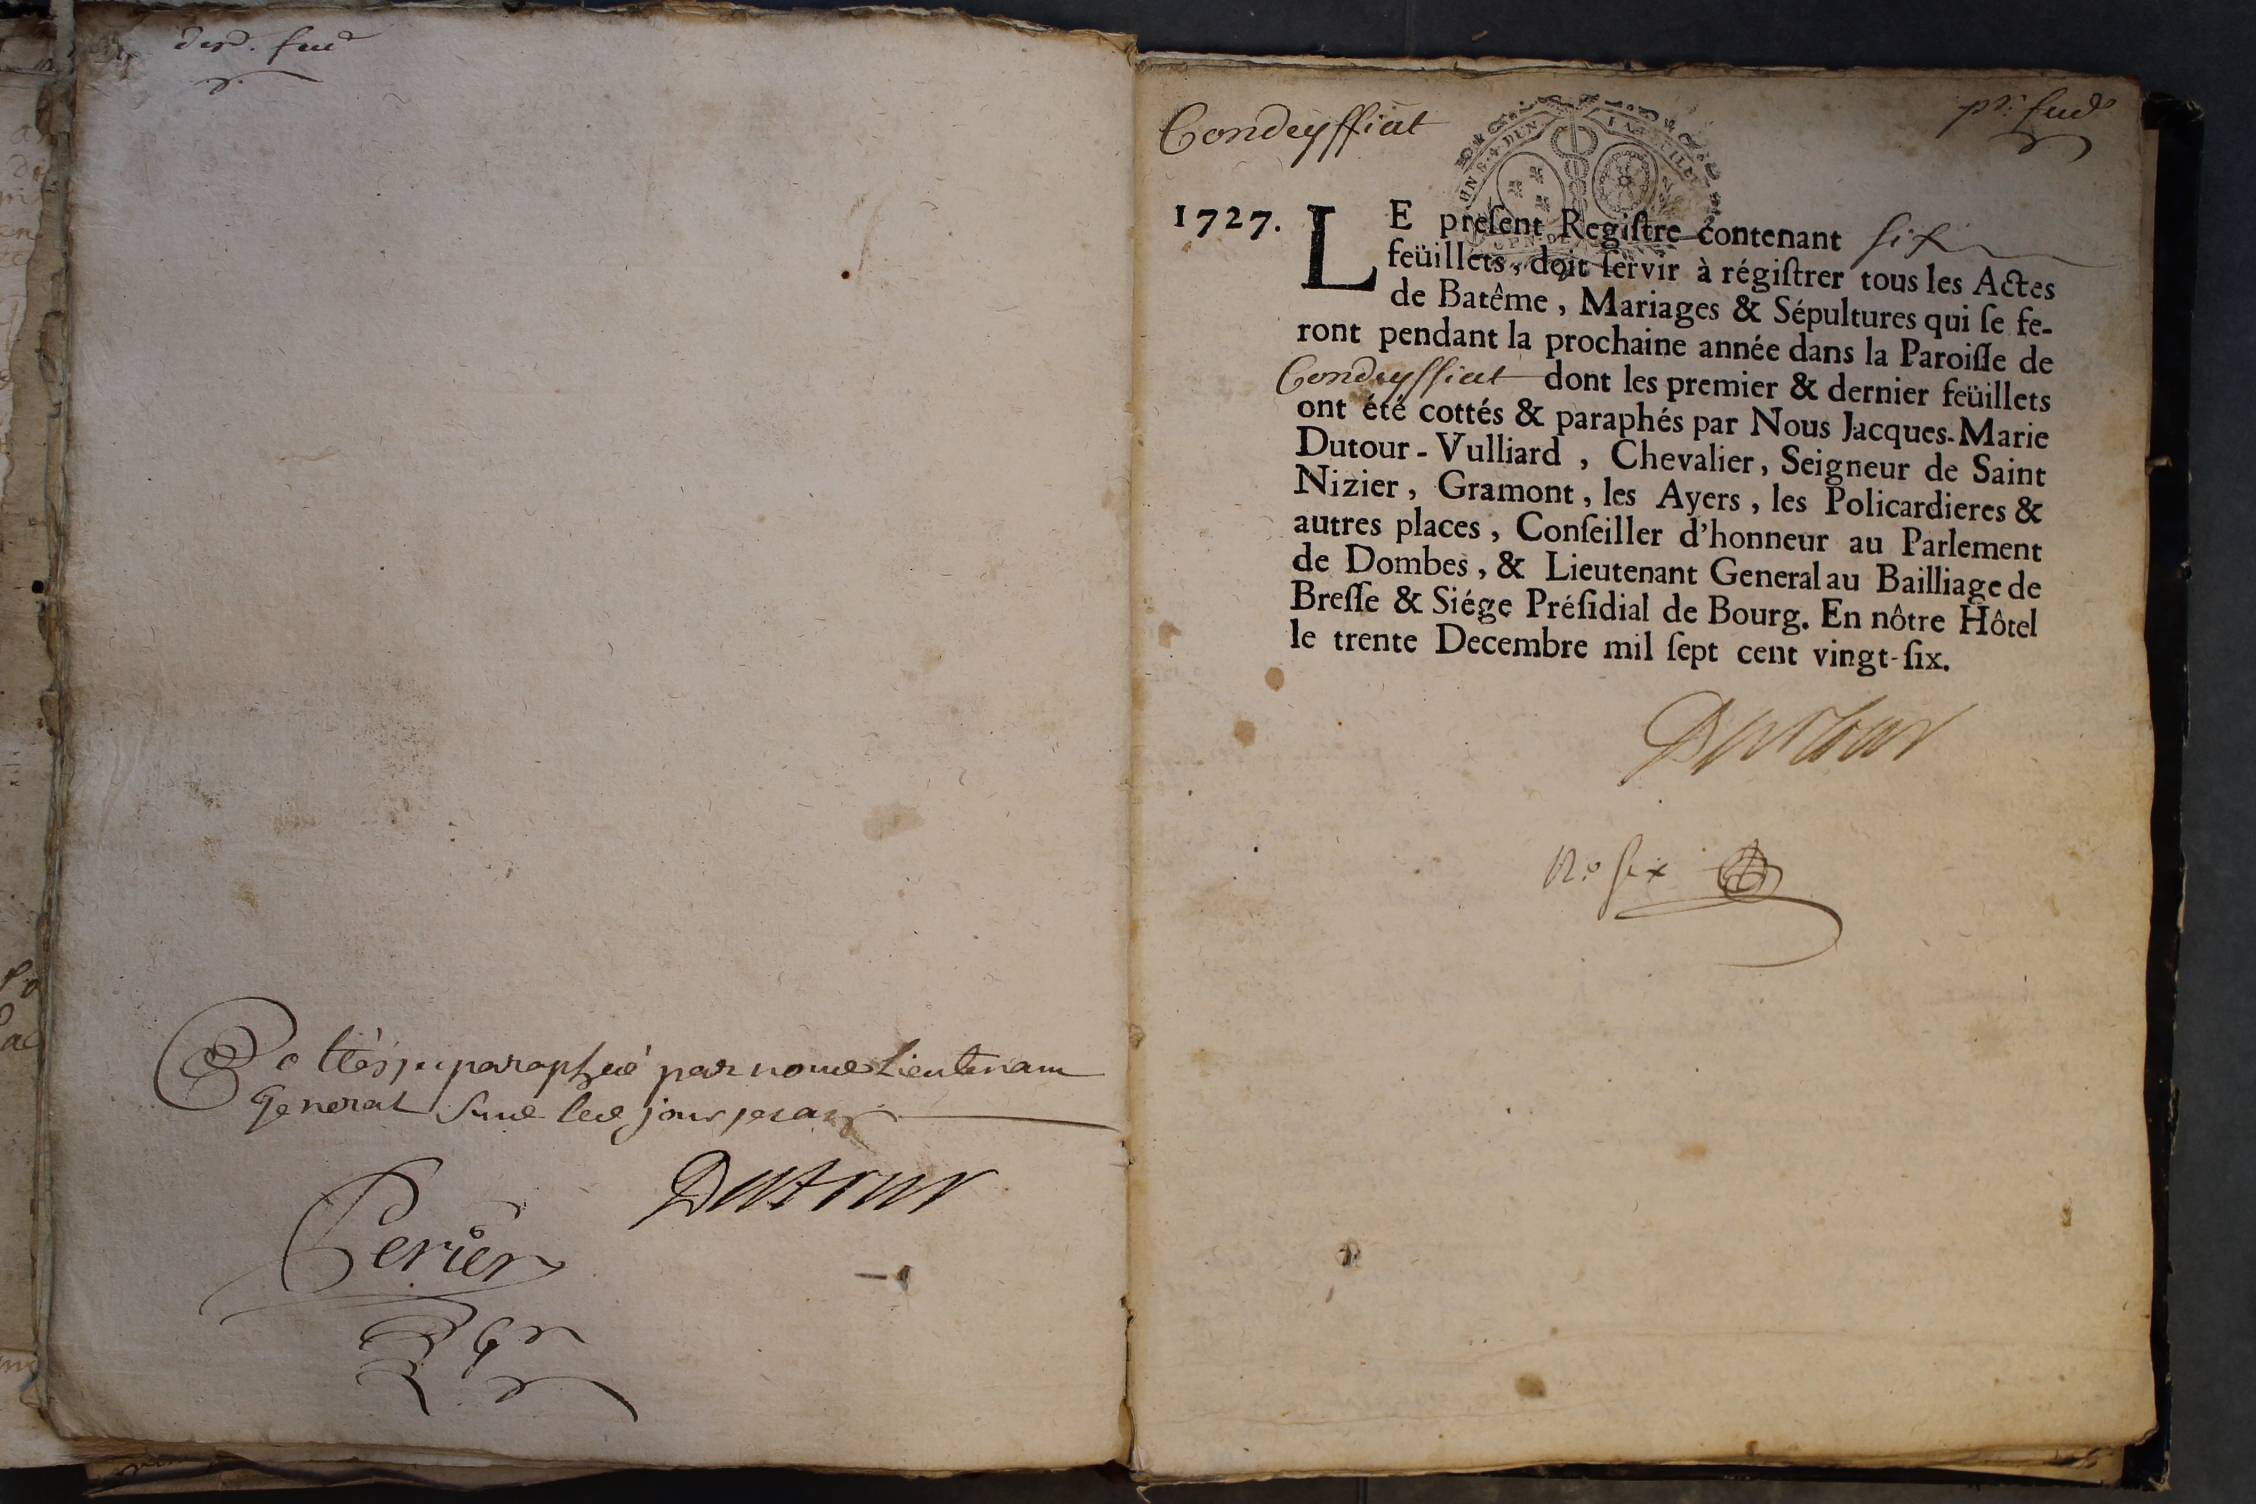 der. feud
Cottés et paraphé par nous Lieutenant
General sus les jour et an
Dutour
Perier
Condeyssiat
pr. feud
1727. LE preſent Regiſtre contenant six
feüillets, doit ſervir à régiſtrer tous les Actes
de Batême, Mariages & Sépultures qui ſe fe-
ront pendant la prochaine année dans la Paroiſſe de
Condeyssiat dont les premier & dernier feüillets
ont été cottés & paraphés par Nous Jacques-Marie
Dutour-Vulliard, Chevalier, Seigneur de Saint
Nizier, Gramont, les Ayers, les Policardieres &
autres places, Conſeiller d'honneur au Parlement
de Dombes, & Lieutenant General au Bailliage de
Breſſe & Siége Préſidial de Bourg. En nôtre Hôtel
le trente Decembre mil ſept cent vingt-ſix.
Dutour
No six